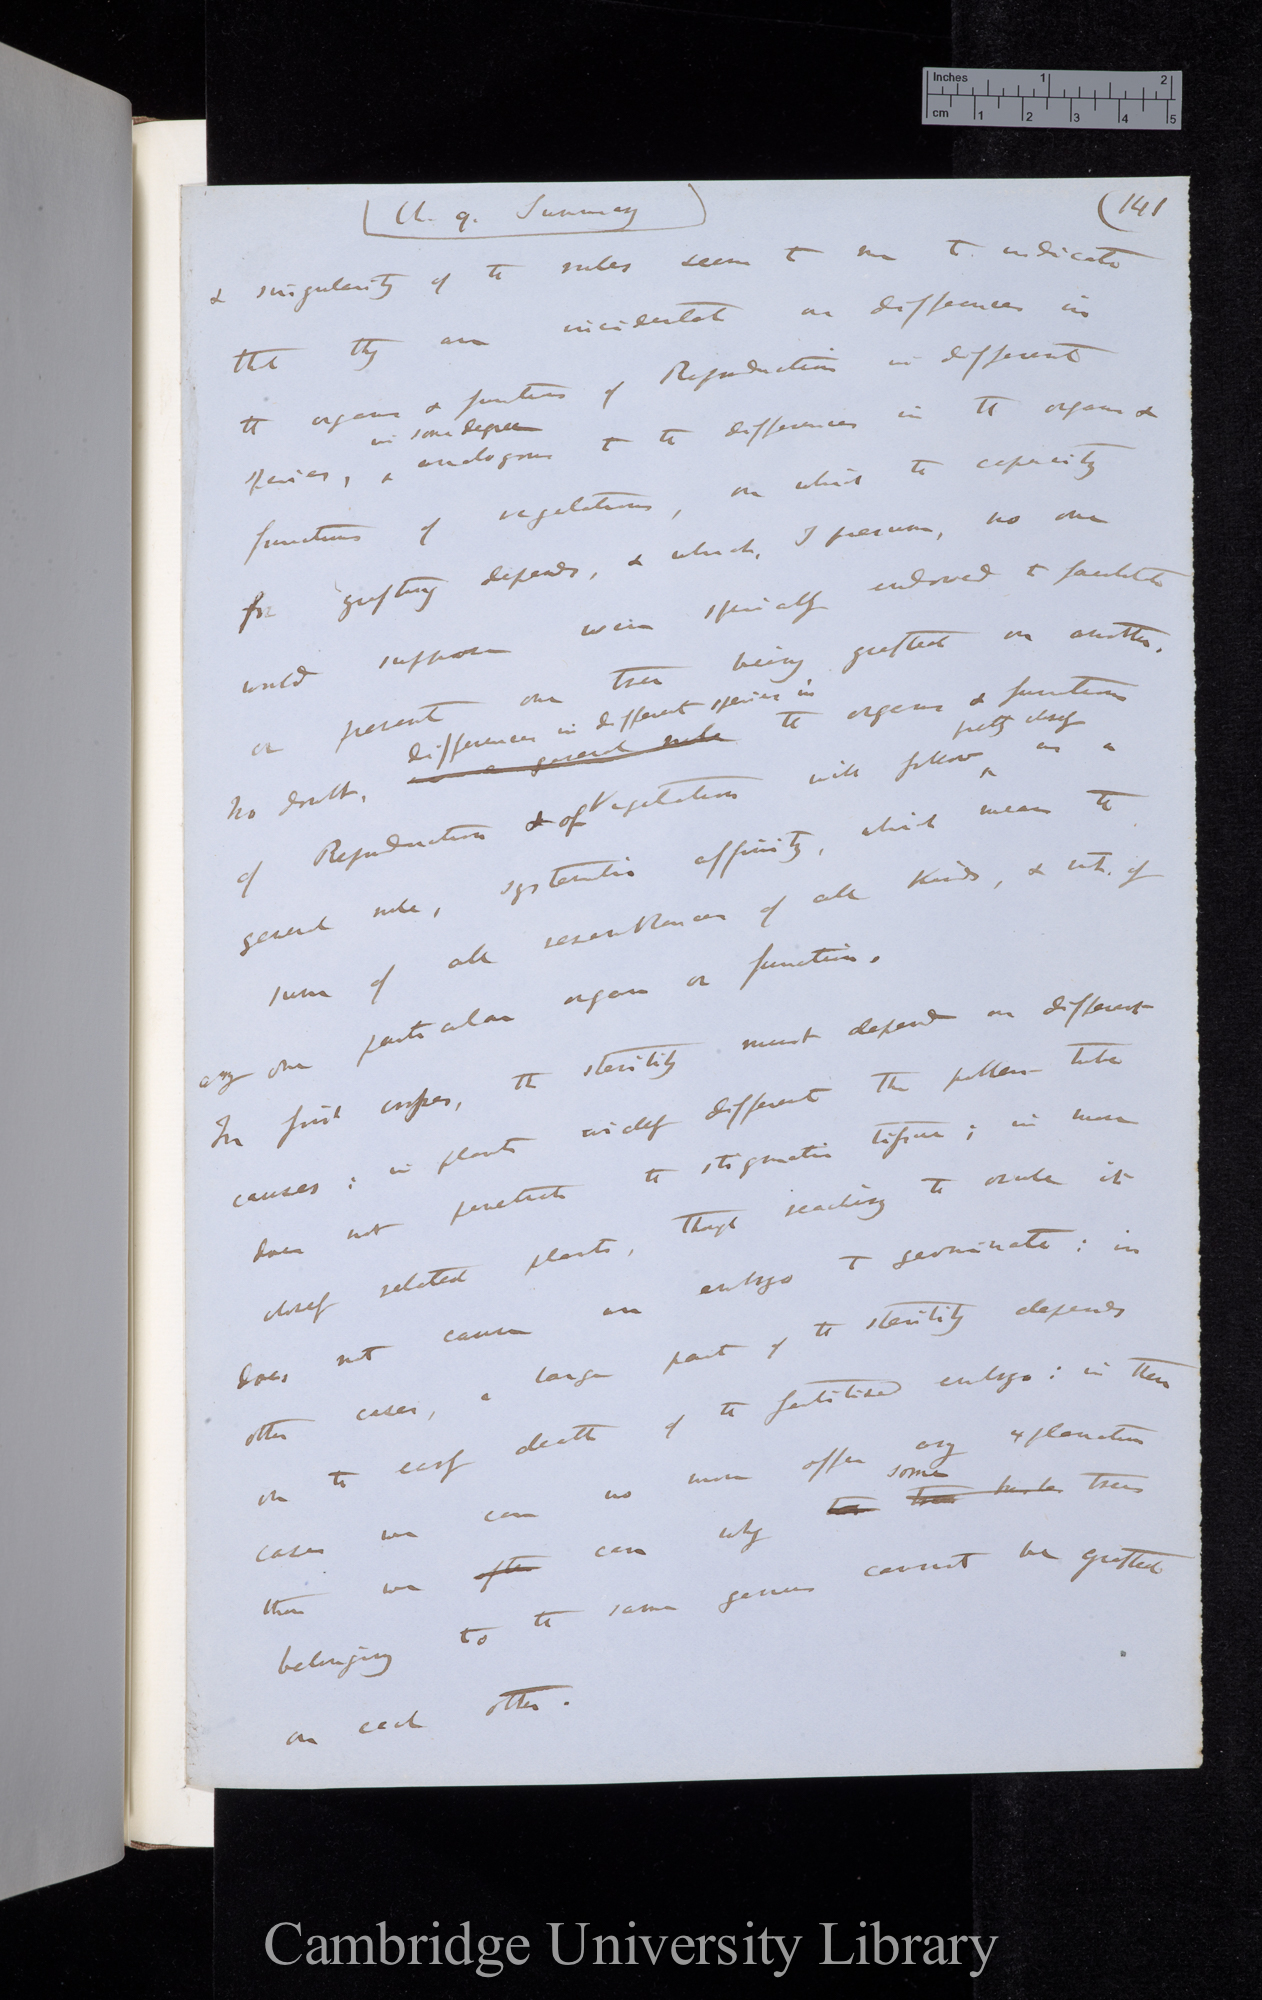 Inches 1 2
cm 1 2 3 4 5
Ch. 9. Summary
(141
& singularity of the rules seem to me to indicate
that they are incidental on differences in
the organs & functions of Reproduction in different
in some degree
species, & analogous to the differences in the organs &
functions of vegetation, on which the capacity
for grafting depends, & which, I presume, no one
would suppose were specially endowed to facilitate
or prevent one tree being grafted on another.
differences in different species in
No doubt, as a general rule the organs & functions
pretty closely
of Reproduction & of Vegetation will follow as a
general rule, systematic affinity, which means the
sum of all resemblances of all kinds, & not of
any one particular organ or function.
In first crosses, the sterility must depend on different
causes; in plants widely different the pollen-tube
does not penetrate the stigmatic tissue; in more
closely related plants, though reaching the ovule it
does not cause an embryo to germinate: in
other cases, a large part of the sterility depends
on the early death of the fertilised embryo: in these
cases we can no more offer any explanation
some
than we often can why two trees trees
belonging to the same genus cannot be grafted
on each other.
Cambridge University Library